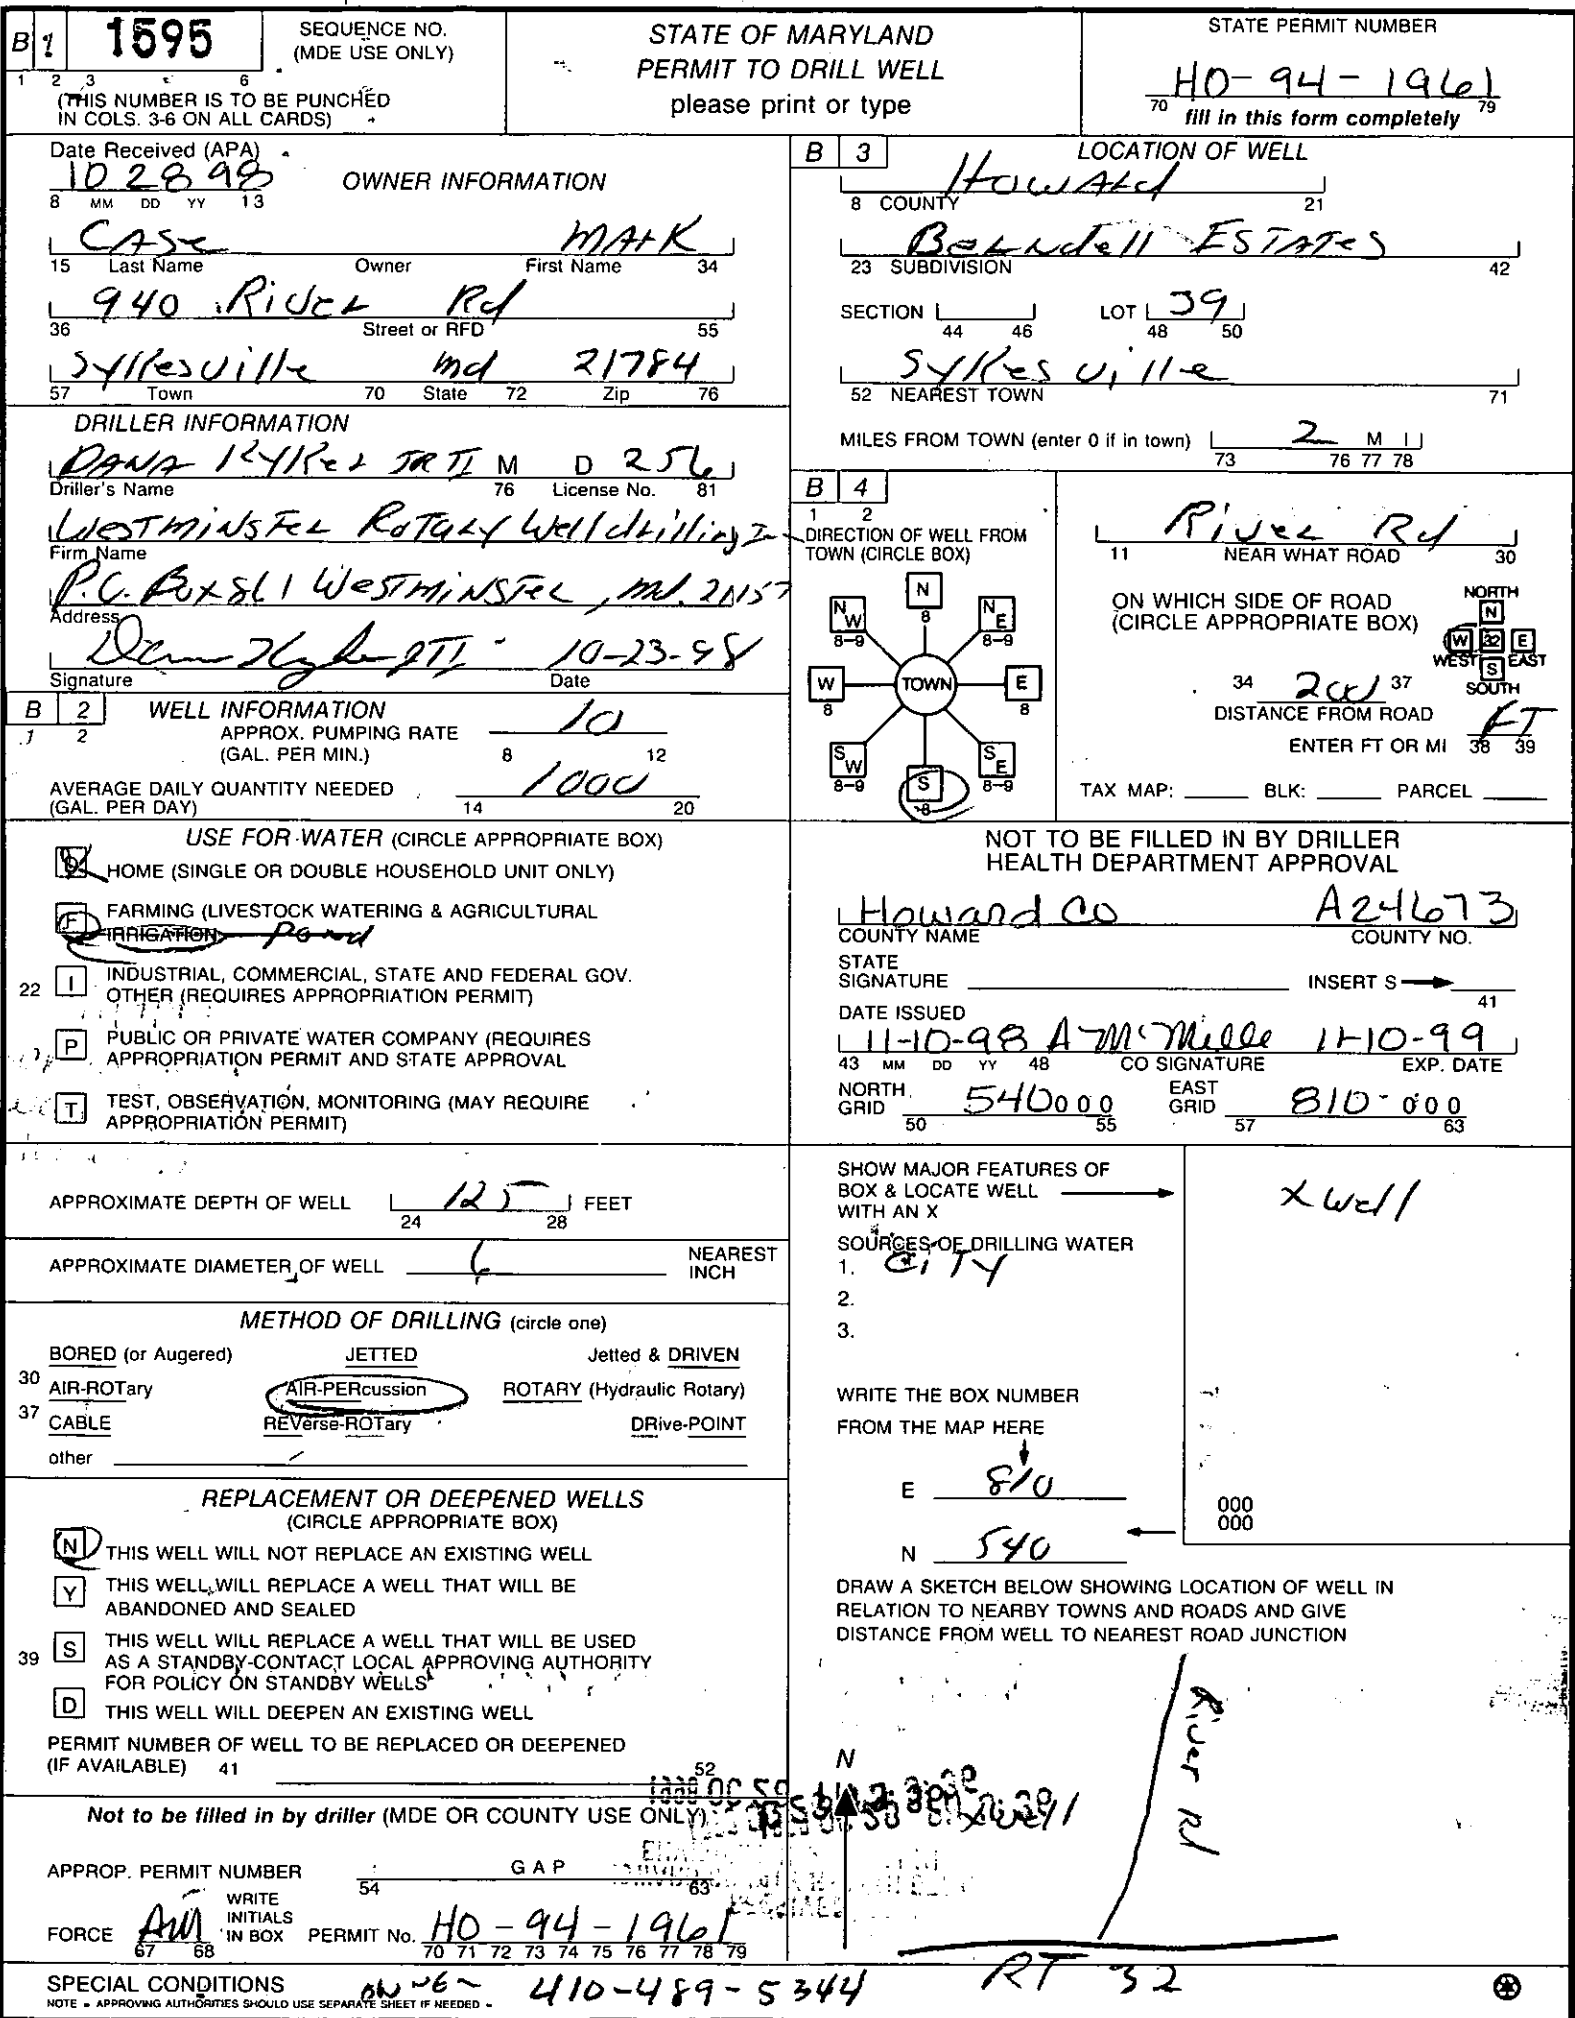 B 1 1595 SEQUENCE NO. (MDE USE ONLY)
1 2 3 6
(THIS NUMBER IS TO BE PUNCHED
IN COLS. 3-6 ON ALL CARDS)
STATE OF MARYLAND
PERMIT TO DRILL WELL
please print or type
STATE PERMIT NUMBER
HO-94-1961
70 fill in this form completely 79
Date Received (APA)
10 28 98
8 MM DD YY 13
OWNER INFORMATION
CASE MARK
15 Last Name Owner First Name 34
940 River Rd
36 Street or RFD 55
Sykesville md 21784
57 Town 70 State 72 Zip 76
DRILLER INFORMATION
DANA KYKER JR II M D 256
Driller's Name 76 License No. 81
WESTMINSTER ROTARY Well drilling
Firm Name
P.O. Box 861 WESTMINSTER, md. 21157
Address
10-23-98
Signature Date
B 2 WELL INFORMATION
1 2
APPROX. PUMPING RATE 10
(GAL. PER MIN.) 8 12
AVERAGE DAILY QUANTITY NEEDED 1000
(GAL. PER DAY) 14 20
USE FOR WATER (CIRCLE APPROPRIATE BOX)
D HOME (SINGLE OR DOUBLE HOUSEHOLD UNIT ONLY)
F FARMING (LIVESTOCK WATERING & AGRICULTURAL
IRRIGATION) Pond
22 I INDUSTRIAL, COMMERCIAL, STATE AND FEDERAL GOV.
OTHER (REQUIRES APPROPRIATION PERMIT)
P PUBLIC OR PRIVATE WATER COMPANY (REQUIRES
APPROPRIATION PERMIT AND STATE APPROVAL
T TEST, OBSERVATION, MONITORING (MAY REQUIRE
APPROPRIATION PERMIT)
APPROXIMATE DEPTH OF WELL 125 FEET
24 28
APPROXIMATE DIAMETER OF WELL 6 NEAREST INCH
METHOD OF DRILLING (circle one)
BORED (or Augered) JETTED Jetted & DRIVEN
30 AIR-ROTary AIR-PERcussion ROTARY (Hydraulic Rotary)
37 CABLE REVerse-ROTary DRive-POINT
other
REPLACEMENT OR DEEPENED WELLS
(CIRCLE APPROPRIATE BOX)
N THIS WELL WILL NOT REPLACE AN EXISTING WELL
Y THIS WELL WILL REPLACE A WELL THAT WILL BE
ABANDONED AND SEALED
39 S THIS WELL WILL REPLACE A WELL THAT WILL BE USED
AS A STANDBY-CONTACT LOCAL APPROVING AUTHORITY
FOR POLICY ON STANDBY WELLS
D THIS WELL WILL DEEPEN AN EXISTING WELL
PERMIT NUMBER OF WELL TO BE REPLACED OR DEEPENED
(IF AVAILABLE) 41 52
Not to be filled in by driller (MDE OR COUNTY USE ONLY)
APPROP. PERMIT NUMBER G A P
54 63
FORCE AM WRITE INITIALS IN BOX PERMIT No. HO-94-1961
67 68 70 71 72 73 74 75 76 77 78 79
B 3 LOCATION OF WELL
Howard
8 COUNTY 21
ESTATES
23 SUBDIVISION 42
SECTION LOT 39
44 46 48 50
Sykesville
52 NEAREST TOWN 71
MILES FROM TOWN (enter 0 if in town) 2 M I
73 76 77 78
B 4
1 2
DIRECTION OF WELL FROM
TOWN (CIRCLE BOX)
N
8
NW NE
8-9 8-9
W TOWN E
8 8
SW SE
8-9 S 8-9
8
River Rd
11 NEAR WHAT ROAD 30
ON WHICH SIDE OF ROAD
(CIRCLE APPROPRIATE BOX)
NORTH
N
W 32 E
WEST EAST
S
SOUTH
34 200 37
DISTANCE FROM ROAD
ENTER FT OR MI FT
38 39
TAX MAP: BLK: PARCEL
NOT TO BE FILLED IN BY DRILLER
HEALTH DEPARTMENT APPROVAL
Howard Co A24673
COUNTY NAME COUNTY NO.
STATE
SIGNATURE INSERT S
41
DATE ISSUED
11-10-98 A McMille 11-10-99
43 MM DD YY 48 CO SIGNATURE EXP. DATE
NORTH GRID 540000 EAST GRID 810-000
50 55 57 63
SHOW MAJOR FEATURES OF
BOX & LOCATE WELL
WITH AN X
x well
SOURCES OF DRILLING WATER
1. CITY
2.
3.
WRITE THE BOX NUMBER
FROM THE MAP HERE
E 810
N 540
000
000
DRAW A SKETCH BELOW SHOWING LOCATION OF WELL IN
RELATION TO NEARBY TOWNS AND ROADS AND GIVE
DISTANCE FROM WELL TO NEAREST ROAD JUNCTION
N
x well
River Rd
RT 32
SPECIAL CONDITIONS 410-489-5344
NOTE - APPROVING AUTHORITIES SHOULD USE SEPARATE SHEET IF NEEDED -